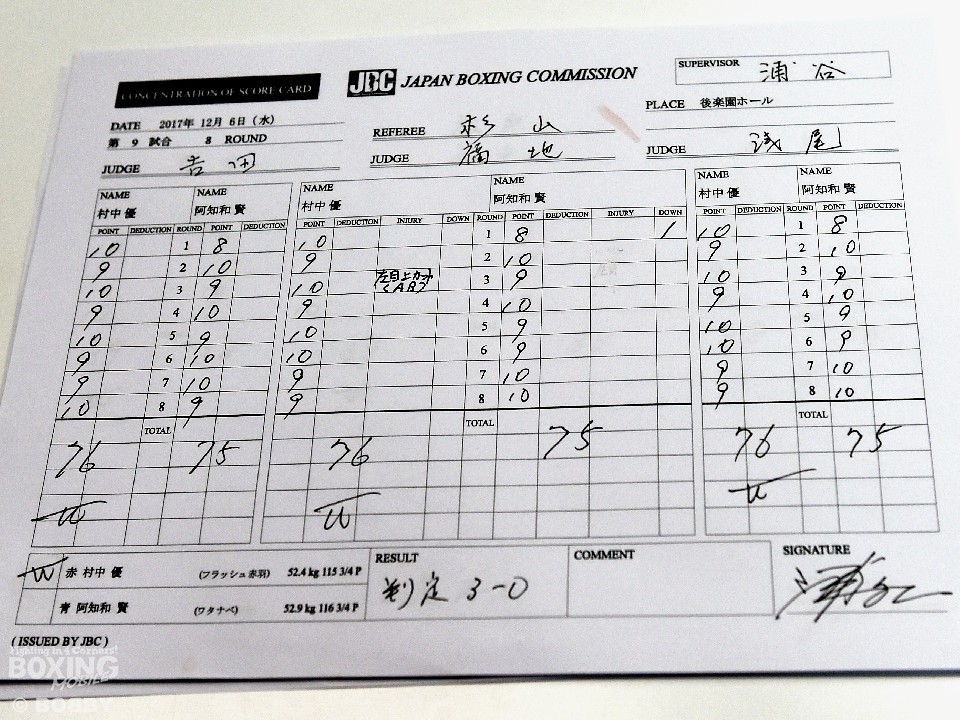 CONCENTRATION OF SCORE CARD
JBC JAPAN BOXING COMMISSION
SUPERVISOR 浦谷
DATE 2017年 12月 6日 (水)
第 9 試合 8 ROUND
REFEREE 杉山
PLACE 後楽園ホール
JUDGE 吉田
JUDGE 福地
JUDGE 浅尾
NAME NAME NAME NAME NAME NAME
村中 優 阿知和 賢 村中 優 阿知和 賢 村中 優 阿知和 賢
POINT DEDUCTION ROUND POINT DEDUCTION POINT DEDUCTION INJURY DOWN ROUND POINT DEDUCTION INJURY DOWN POINT DEDUCTION ROUND POINT DEDUCTION
10 1 8 10 1 8 1 10 1 8
9 2 10 9 2 10 9 2 10
10 3 9 10 左目上カット (AB) 3 9 10 3 9
9 4 10 9 4 10 9 4 10
10 5 9 10 5 9 10 5 9
9 6 10 10 6 9 10 6 9
9 7 10 9 7 10 9 7 10
10 8 9 9 8 10 9 8 10
TOTAL TOTAL TOTAL
76 75 76 75 76 75
W W W
W 赤 村中 優 (フラッシュ赤羽) 52.4 kg 115 3/4 P
青 阿知和 賢 (ワタナベ) 52.9 kg 116 3/4 P
RESULT
判定 3-0
COMMENT
SIGNATURE
浦谷
( ISSUED BY JBC )
Fighting in 4 Corners!
BOXING
MOBILE
© BOBBY